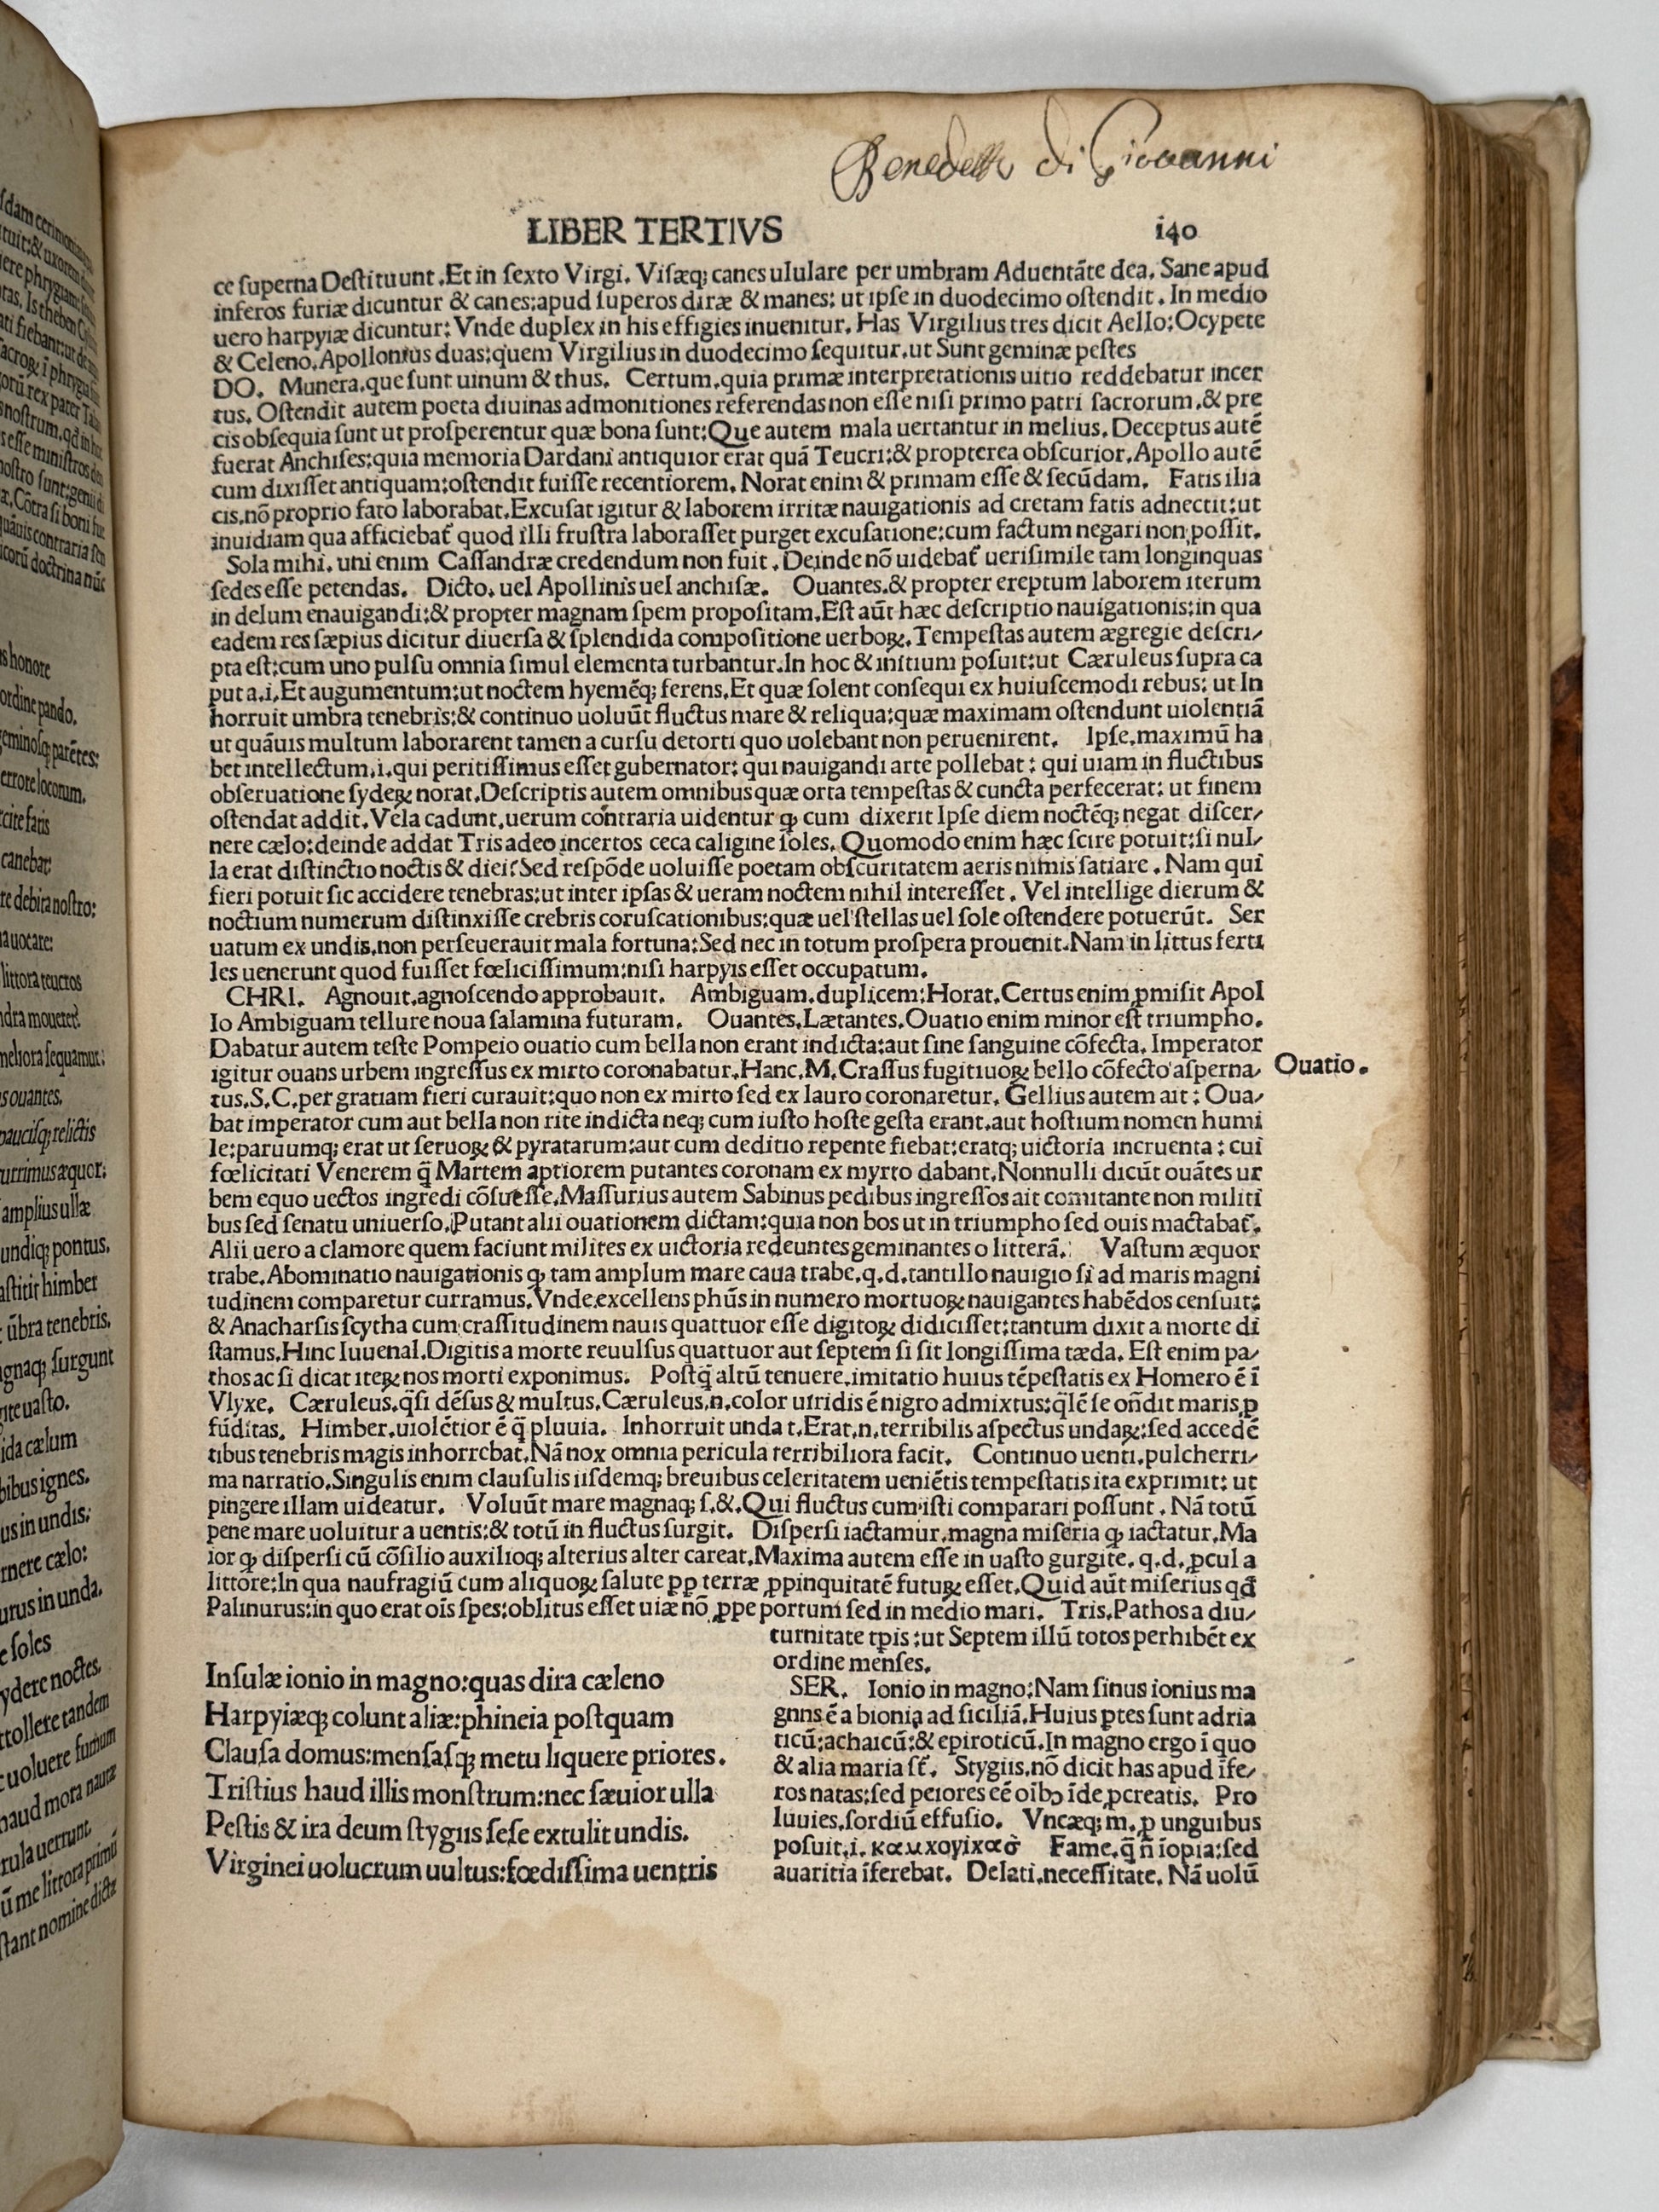 Benedetto di Giovanni
LIBER TERTIVS
i40
ce ſuperna Deſtituunt.Et in ſexto Virgi. Viſæq; canes ululare per umbram Aduentāte dea. Sane apud
inferos furiæ dicuntur & canes:apud ſuperos diræ & manes: ut ipſe in duodecimo oſtendit. In medio
uero harpyiæ dicuntur: Vnde duplex in his effigies inuenitur. Has Virgilius tres dicit Aello:Ocypete
& Celeno.Apollonius duas:quem Virgilius in duodecimo ſequitur.ut Sunt geminæ peſtes
DO. Munera.que ſunt uinum & thus. Certum.quia primæ interpretationis uitio reddebatur incer
tus. Oſtendit autem poeta diuinas admonitiones referendas non eſſe niſi primo patri ſacrorum.& pre
cis obſequia ſunt ut proſperentur quæ bona ſunt:Que autem mala uertantur in melius. Deceptus autē
fuerat Anchiſes:quia memoria Dardani antiquior erat quā Teucri:& propterea obſcurior.Apollo autē
cum dixiſſet antiquam:oſtendit fuiſſe recentiorem. Norat enim & primam eſſe & ſecūdam. Fatis ilia
cis.nō proprio fato laborabat.Excuſat igitur & laborem irritæ nauigationis ad cretam fatis adnectit:ut
inuidiam qua afficiebat᷑ quod illi fruſtra laboraſſet purget excuſatione:cum factum negari non poſſit.
Sola mihi. uni enim Caſſandræ credendum non fuit. Deinde nō uidebat᷑ ueriſimile tam longinquas
ſedes eſſe petendas. Dicto. uel Apollinis uel anchiſæ. Ouantes.& propter ereptum laborem iterum
in delum enauigandi:& propter magnam ſpem propoſitam.Eſt aūt hæc deſcriptio nauigationis:in qua
eadem res ſæpius dicitur diuerſa & ſplendida compoſitione uerboꝝ.Tempeſtas autem ægregie deſcri⸗
pta eſt:cum uno pulſu omnia ſimul elementa turbantur.In hoc & initium poſuit:ut Cæruleus ſupra ca
put a.i.Et augumentum:ut noctem hyemēq; ferens.Et quæ ſolent conſequi ex huiuſcemodi rebus: ut In
horruit umbra tenebris:& continuo uoluūt fluctus mare & reliqua:quæ maximam oſtendunt uiolentiā
ut quāuis multum laborarent tamen a curſu detorti quo uolebant non peruenirent. Ipſe.maximū ha
bet intellectum.i.qui peritiſſimus eſſet gubernator: qui nauigandi arte pollebat: qui uiam in fluctibus
obſeruatione ſydeꝝ norat.Deſcriptis autem omnibus quæ orta tempeſtas & cuncta perfecerat: ut finem
oſtendat addit.Vela cadunt.uerum contraria uidentur ꝙ cum dixerit Ipſe diem noctēq; negat diſcer⸗
nere cælo:deinde addat Tris adeo incertos ceca caligine ſoles. Quomodo enim hæc ſcire potuit:ſi nul⸗
la erat diſtinctio noctis & diei?Sed reſpōde uoluiſſe poetam obſcuritatem aeris nimis ſatiare. Nam qui
fieri potuit ſic accidere tenebras:ut inter ipſas & ueram noctem nihil intereſſet. Vel intellige dierum &
noctium numerum diſtinxiſſe crebris coruſcationibus:quæ uel ſtellas uel ſole oſtendere potuerūt. Ser
uatum ex undis.non perſeuerauit mala fortuna:Sed nec in totum proſpera prouenit.Nam in littus ferti
les uenerunt quod fuiſſet fœliciſſimum:niſi harpyis eſſet occupatum.
CHRI. Agnouit.agnoſcendo approbauit. Ambiguam.duplicem:Horat.Certus enim ꝓmiſit Apol
lo Ambiguam tellure noua ſalamina futuram. Ouantes.Lætantes.Ouatio enim minor eſt triumpho.
Dabatur autem teſte Pompeio ouatio cum bella non erant indicta:aut ſine ſanguine cōfecta. Imperator
igitur ouans urbem ingreſſus ex mirto coronabatur.Hanc.M.Craſſus fugitiuoꝝ bello cōfecto aſperna⸗
Ouatio.
tus.S.C.per gratiam fieri curauit:quo non ex mirto ſed ex lauro coronaretur. Gellius autem ait: Oua⸗
bat imperator cum aut bella non rite indicta neq; cum iuſto hoſte geſta erant.aut hoſtium nomen humi
le:paruumq; erat ut ſeruoꝝ & pyratarum:aut cum deditio repente fiebat:eratq; uictoria incruenta: cui
fœlicitati Venerem q̄ Martem aptiorem putantes coronam ex myrto dabant.Nonnulli dicūt ouātes ur
bem equo uectos ingredi cōſueſſe.Maſſurius autem Sabinus pedibus ingreſſos ait comitante non militi
bus ſed ſenatu uniuerſo.Putant alii ouationem dictam:quia non bos ut in triumpho ſed ouis mactabat᷑.
Alii uero a clamore quem faciunt milites ex uictoria redeuntes geminantes o litterā. Vaſtum æquor
trabe.Abominatio nauigationis ꝙ tam amplum mare caua trabe.q.d.tantillo nauigio ſi ad maris magni
tudinem comparetur curramus.Vnde.excellens phūs in numero mortuoꝝ nauigantes habēdos cenſuit:
& Anacharſis ſcytha cum craſſitudinem nauis quattuor eſſe digitoꝝ didiciſſet:tantum dixit a morte di
ſtamus.Hinc Iuuenal.Digitis a morte reuulſus quattuor aut ſeptem ſi ſit longiſſima tæda. Eſt enim pa⸗
thos ac ſi dicat iteꝝ nos morti exponimus. Poſtq̄ altū tenuere.imitatio huius tēpeſtatis ex Homero ē ī
Vlyxe. Cæruleus.q̄ſi dēſus & multus.Cæruleus.n.color uiridis ē nigro admixtus:q̄lē ſe oñdit maris ꝓ
fūditas. Himber.uiolētior ē q̄ pluuia. Inhorruit unda t.Erat.n.terribilis aſpectus undaꝝ:ſed accedē
tibus tenebris magis inhorrebat.Nā nox omnia pericula terribiliora facit. Continuo uenti.pulcherri⸗
ma narratio.Singulis enim clauſulis iiſdemq; breuibus celeritatem ueniētis tempeſtatis ita exprimit: ut
pingere illam uideatur. Voluūt mare magnaq; ſ.&.Qui fluctus cum iſti comparari poſſunt. Nā totū
pene mare uoluitur a uentis:& totū in fluctus ſurgit. Diſperſi iactamur.magna miſeria ꝙ iactatur.Ma
ior ꝙ diſperſi cū cōſilio auxilioq; alterius alter careat.Maxima autem eſſe in uaſto gurgite. q.d.ꝓcul a
littore:In qua naufragiū cum aliquoꝝ ſalute ꝓp terræ ꝓpinquitatē futuꝝ eſſet.Quid aūt miſerius qđ
Palinurus:in quo erat oīs ſpes:oblitus eſſet uiæ nō ꝓpe portum ſed in medio mari. Tris.Pathos a diu⸗
turnitate tꝑis:ut Septem illū totos perhibēt ex
ordine menſes.
Inſulæ ionio in magno:quas dira cæleno
Harpyiæq; colunt aliæ:phineia poſtquam
Clauſa domus:menſaſq; metu liquere priores.
Triſtius haud illis monſtrum:nec ſæuior ulla
Peſtis & ira deum ſtygiis ſeſe extulit undis.
Virginei uolucrum uultus:fœdiſſima uentris
SER. Ionio in magno:Nam ſinus ionius ma
gnns ē a bionia ad ſiciliā.Huius ꝑtes ſunt adria
ticū:achaicū:& epiroticū.In magno ergo ī quo
& alia maria ſt᷑. Stygiis.nō dicit has apud īfe⸗
ros natas:ſed peiores eē oībꝰ īde ꝓcreatis. Pro
luuies.ſordiū effuſio. Vncæq; m.ꝓ unguibus
poſuit.i. καμχογιχασ̀ Fame.q̄ ñ īopia:ſed
auaritia īferebat. Delati.neceſſitate. Nā uolū